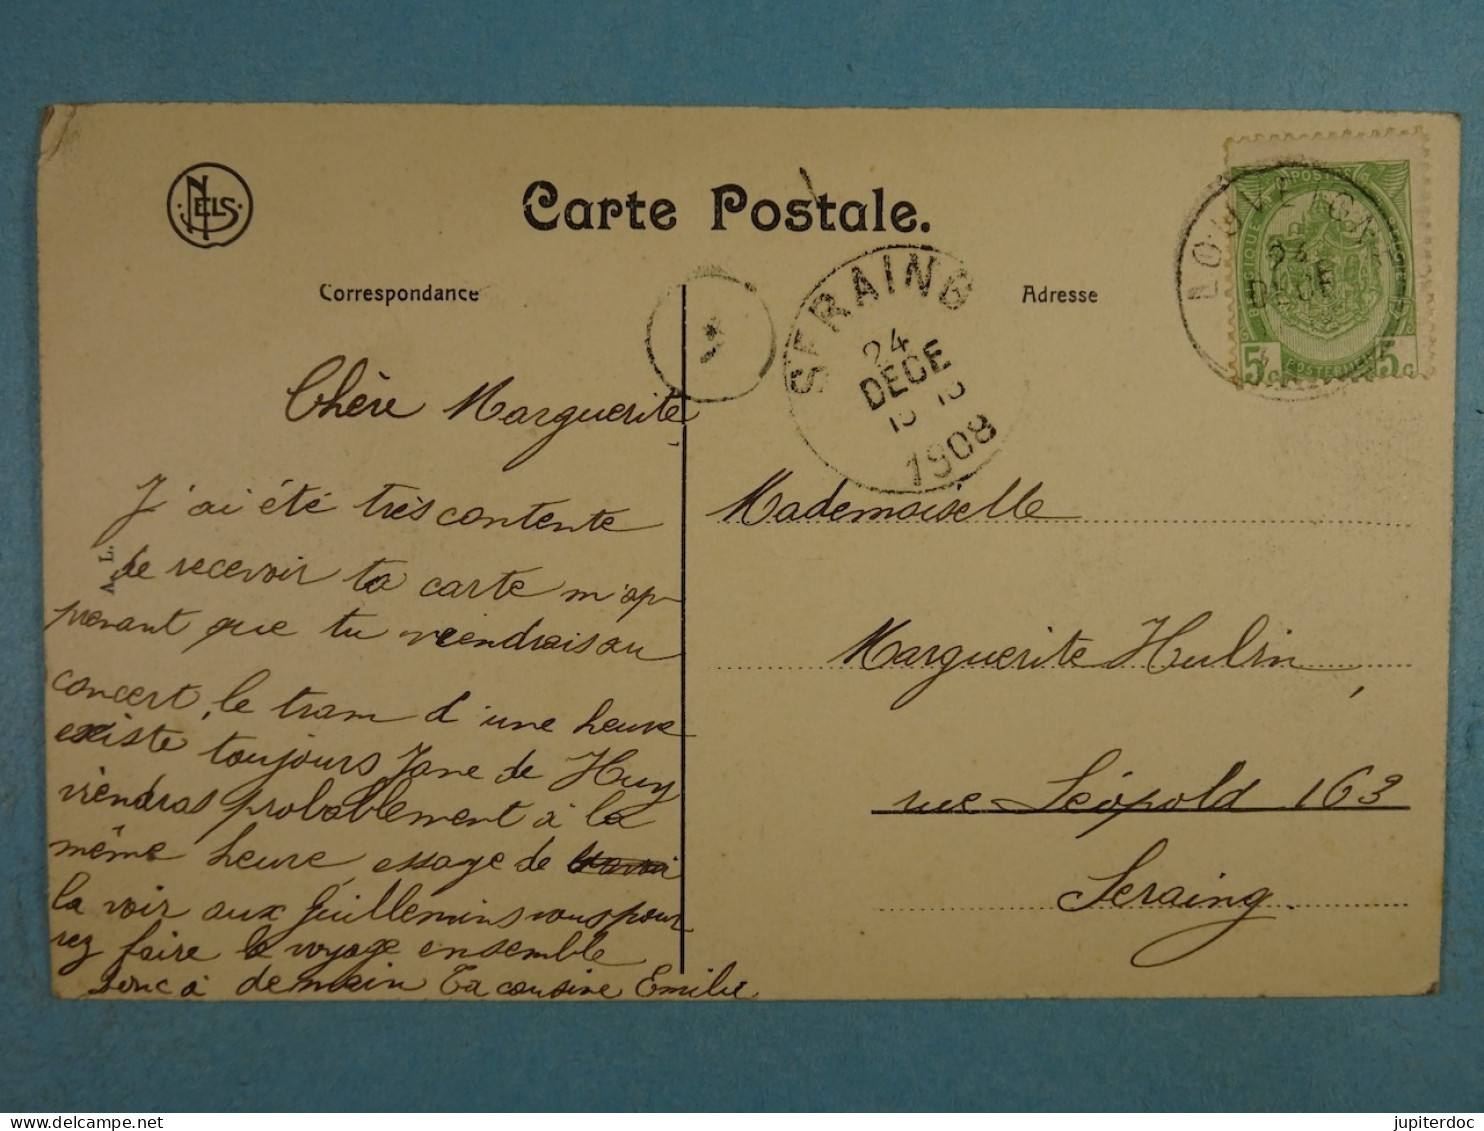 NELS
Carte Postale.
Correspondance
Adresse
SERAING
24
DECE
1908
LOUVEIGN
24
DECE
BELGIQUE
POSTES
POSTERIJEN
5c 5c
Chère Marguerite
J'ai été très contente
de recevoir ta carte m'ap-
prenant que tu viendrais au
concert, le tram d'une heure
existe toujours Jane de Huy
viendras probablement à la
même heure, essaye de
la voir aux Guillemins vous pour
rez faire le voyage ensemble
Donc à demain Ta cousine Emilie
A. L.
Mademoiselle
Marguerite Hulin,
rue Léopold 163
Seraing.
jupiterdoc